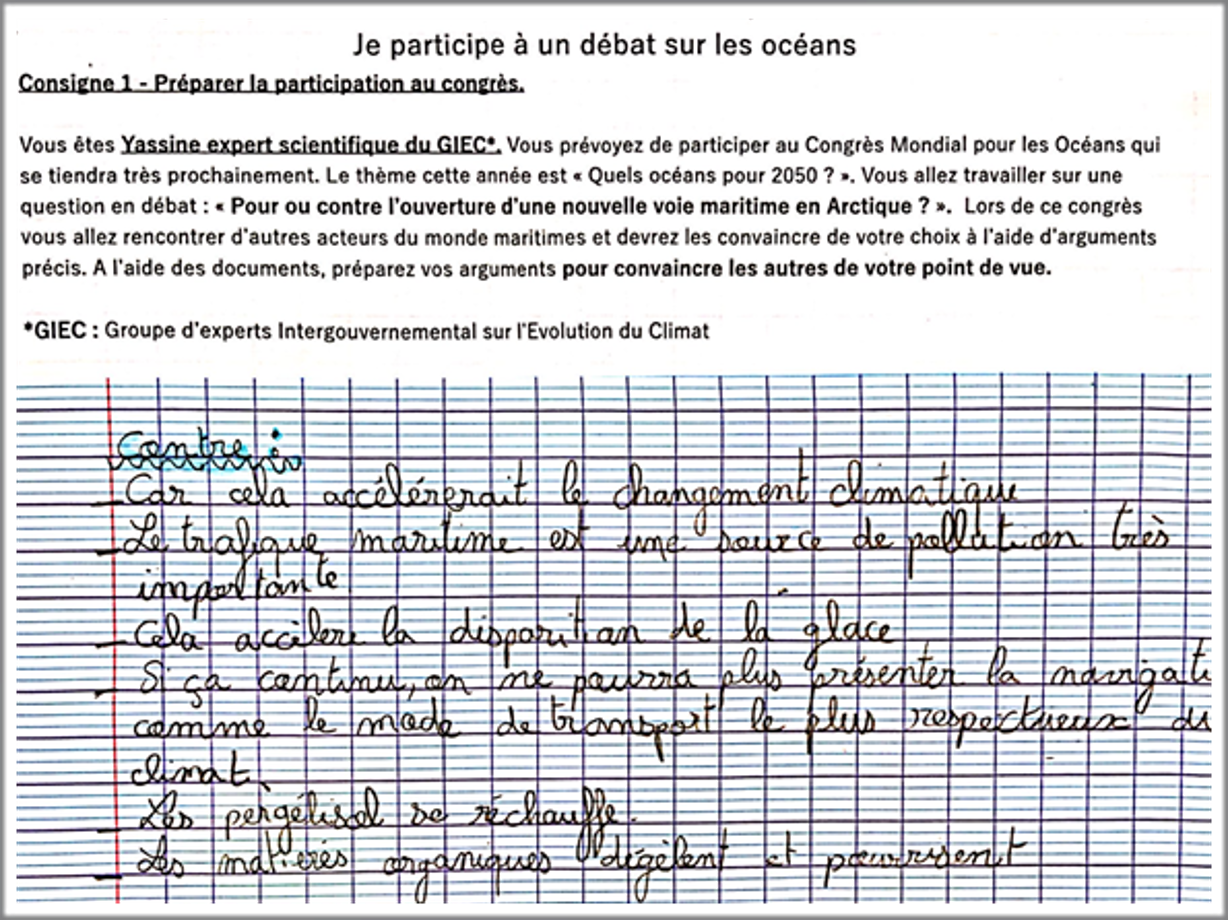 Je participe à un débat sur les océans
Consigne 1 - Préparer la participation au congrès.
Vous êtes Yassine expert scientifique du GIEC*. Vous prévoyez de participer au Congrès Mondial pour les Océans qui
se tiendra très prochainement. Le thème cette année est « Quels océans pour 2050 ? ». Vous allez travailler sur une
question en débat : « Pour ou contre l'ouverture d'une nouvelle voie maritime en Arctique ? ». Lors de ce congrès
vous allez rencontrer d'autres acteurs du monde maritimes et devrez les convaincre de votre choix à l'aide d'arguments
précis. A l'aide des documents, préparez vos arguments pour convaincre les autres de votre point de vue.
*GIEC : Groupe d'experts Intergouvernemental sur l'Evolution du Climat
Contre :
- Car cela accélérerait le changement climatique
- Le trafique maritime est une source de pollution très
importante
- Cela accèlere la disparition de la glace
- Si ça continu, on ne pourra plus présenter la navigati
comme le mode de transport le plus respectueux du
climat.
- Les pergélisol se réchauffe.
- Les matières organiques dégèlent et pourrisent